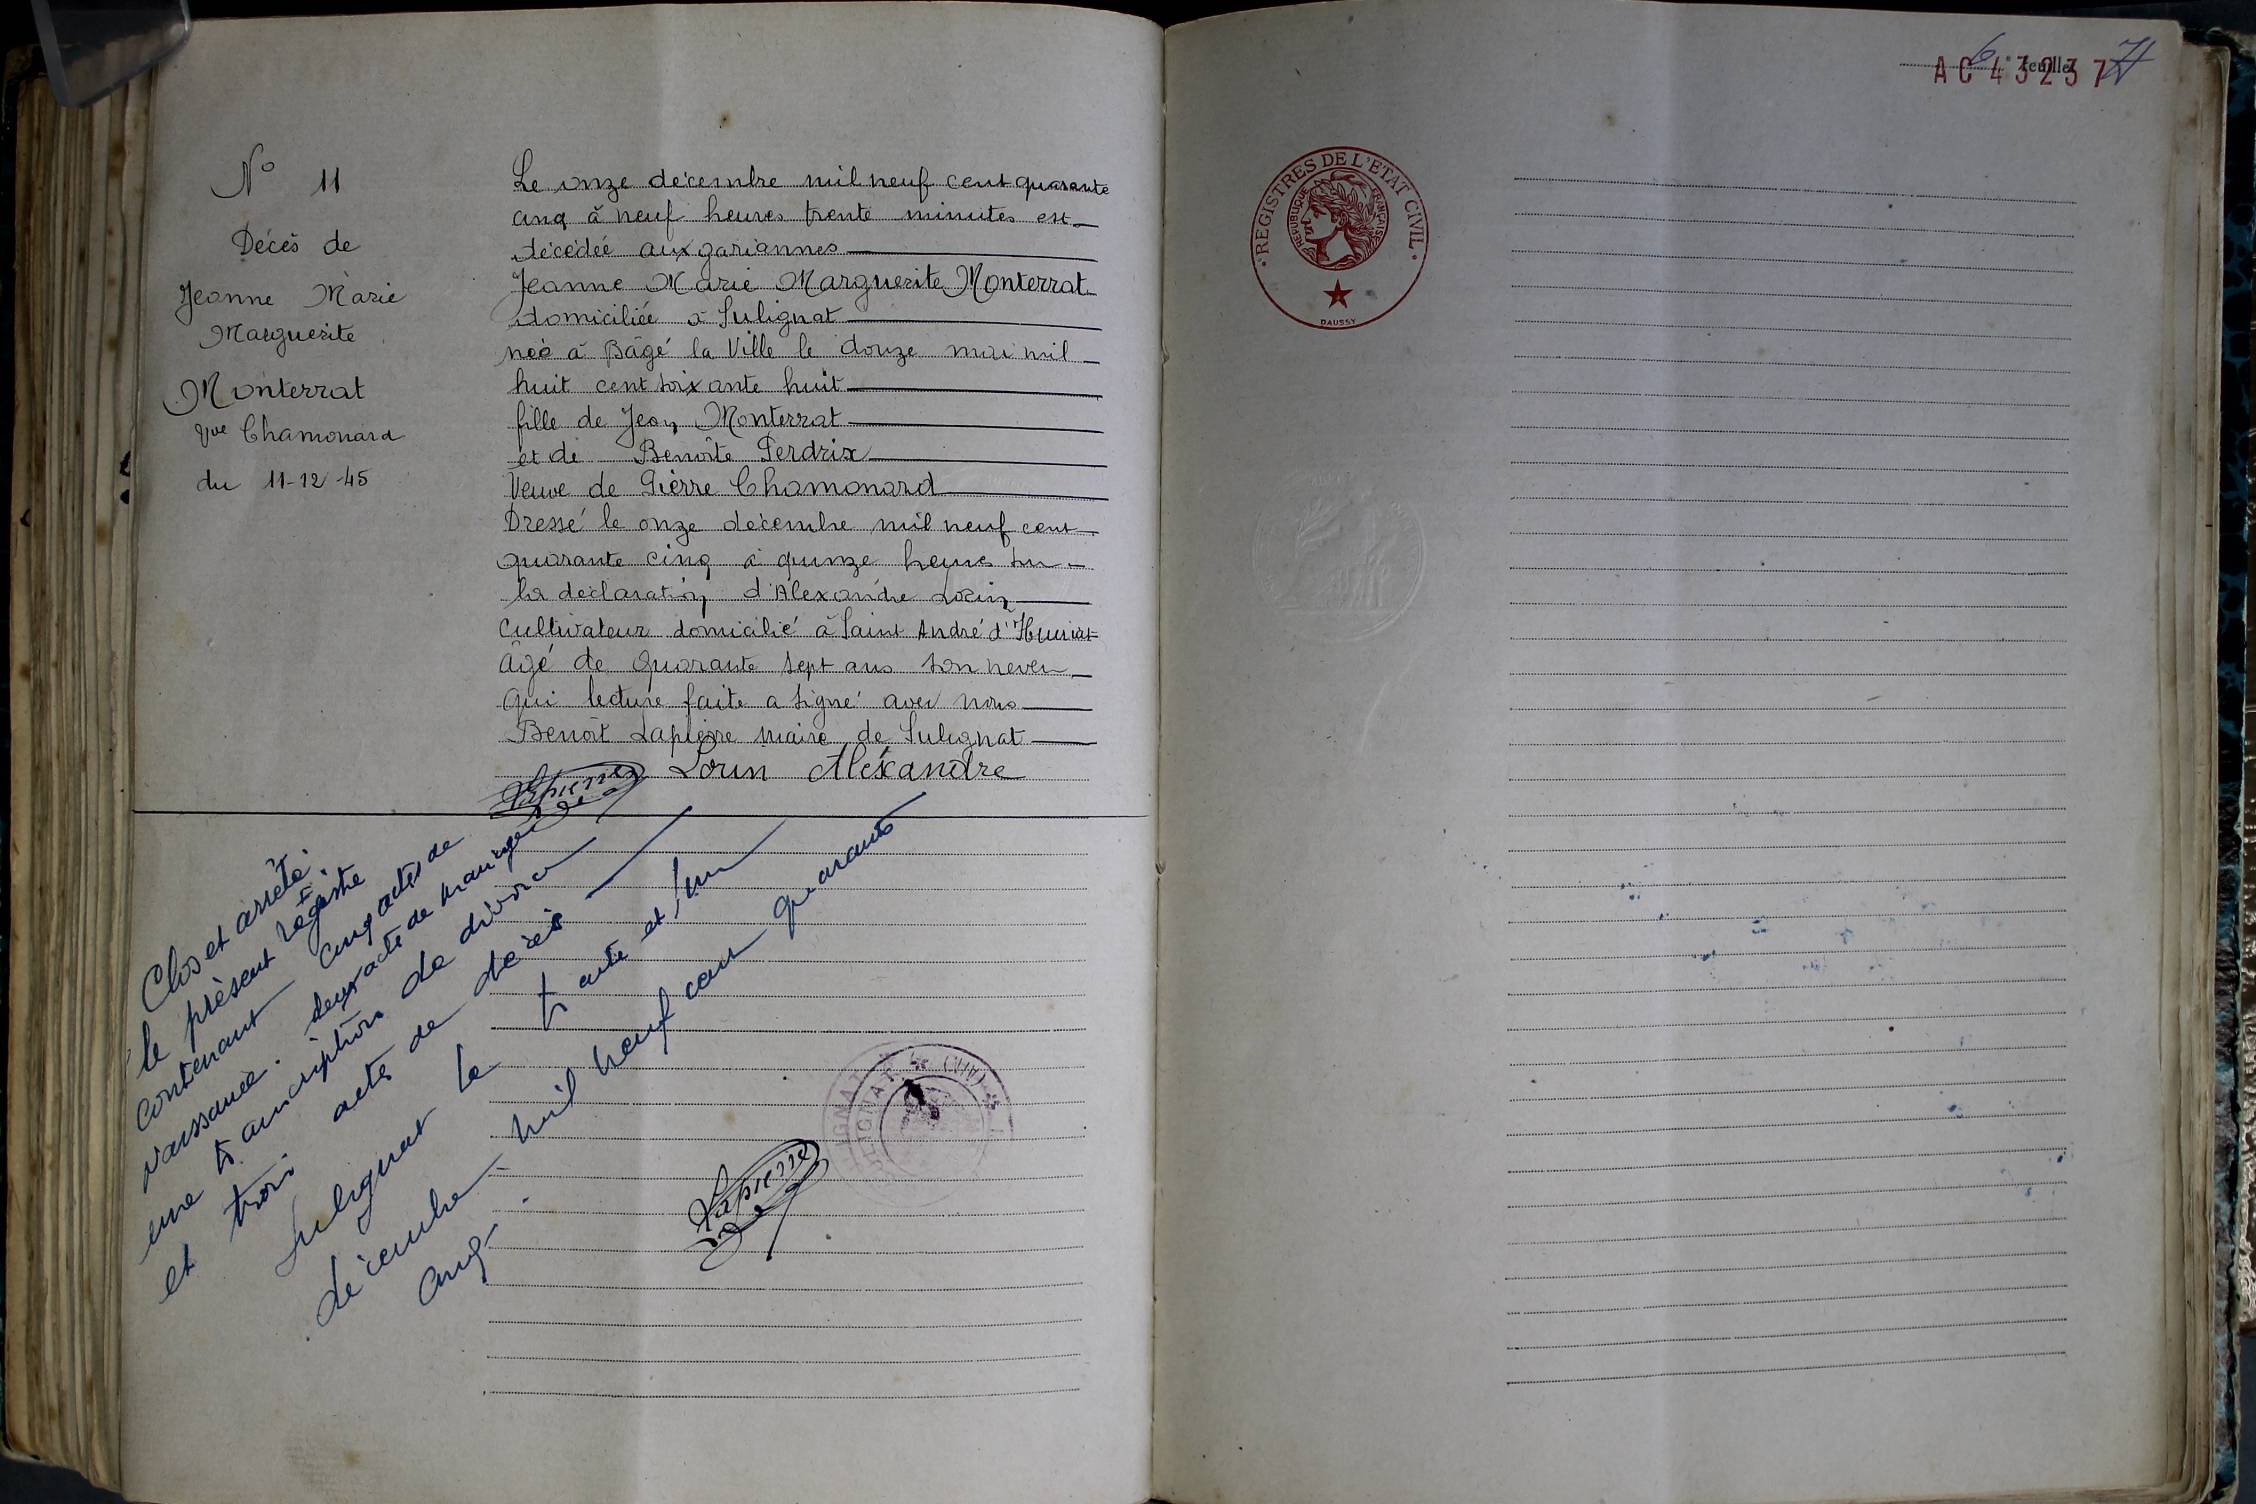 N° 11
Décès de
Jeanne Marie
Marguerite
Monterrat
Vve Chamonard
du 11-12-45
Le onze décembre mil neuf cent quarante
cinq à neuf heures trente minutes est
décédée aux gariannes
Jeanne Marie Marguerite Monterrat
domiciliée à Sulignat
née à Bâgé la Ville le douze mai mil
huit cent soixante huit
fille de Jean Monterrat
et de Benoîte Perdrix
Veuve de Pierre Chamonard
Dressé le onze décembre mil neuf cent
quarante cinq à quinze heures sur
la déclaration d'Alexandre Lorin
cultivateur domicilié à Saint André d'Huiriat
âgé de quarante sept ans son neveu
qui lecture faite a signé avec nous
Benoît Lapierre maire de Sulignat
Lapierre Lorin Alexandre
Clos et arrêté
le présent registre
contenant cinq actes de
naissance. deux actes de mariage
une transcription de divorce
et trois actes de décès
Sulignat le trente et un
décembre mil neuf cent quarante
cinq.
Lapierre
(AIN)
6e feuillet
AC 43237
REGISTRES DE L'ETAT CIVIL
REPUBLIQUE FRANÇAISE
DAUSSY